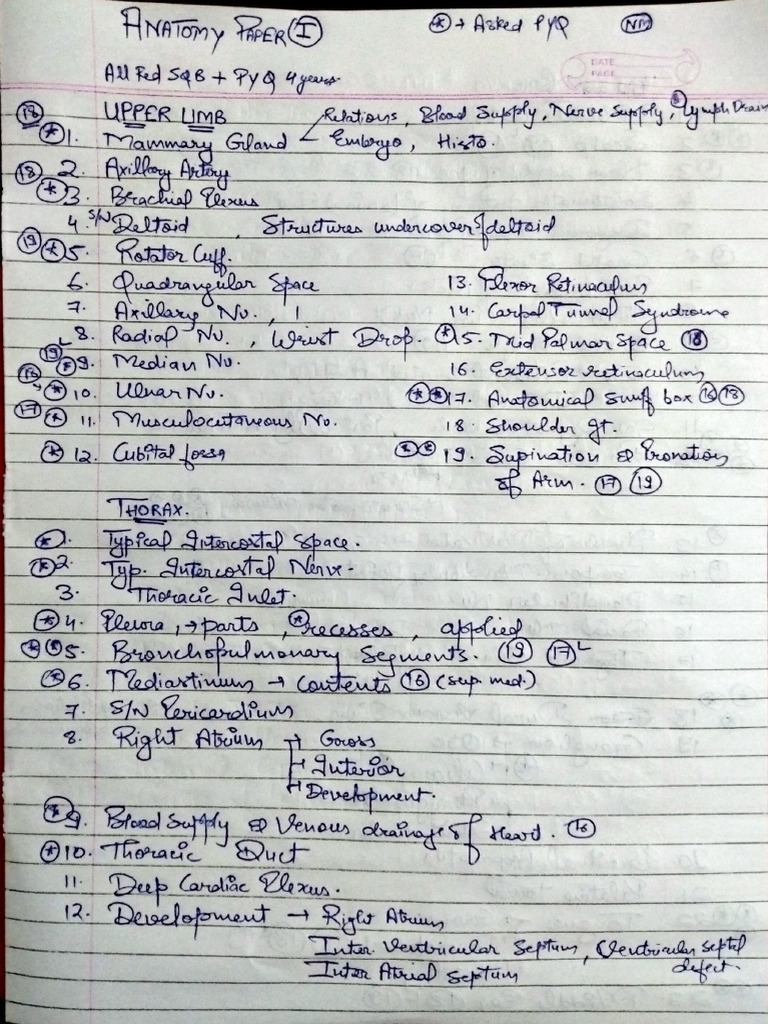 ANATOMY PAPER I
* → Asked PYQ
NM
DATE
PAGE
All Fed SQB + PYQ 4 years.
18 UPPER LIMB
* 1. Mammary Gland Relations, Blood Supply, Nerve Supply, * Lymph Drain
Embryo, Histo.
18 2. Axillary Artery
* 3. Brachial Plexus
4. S/N Deltoid, Structures undercover of deltoid
19 * 5. Rotator Cuff.
6. Quadrangular Space
7. Axillary Nv., 1
8. Radial Nv., Wrist Drop.
19 * 9. Median Nv.
16 * 10. Ulnar Nv.
17 * 11. Musculocutaneous Nv.
* 12. Cubital fossa
13. Flexor Retinaculum
14. Carpal Tunnel Syndrome
* 15. Mid Palmar Space 18
16. Extensor retinaculum
* * 17. Anatomical snuff box 16 18
18. Shoulder Jt.
* * 19. Supination & Pronation
of Arm. 17 19
THORAX.
* 1. Typical Intercostal Space.
* 2. Typ. Intercostal Nerve.
3. Thoracic Inlet.
* 4. Pleura, → parts, * recesses, applied
* * 5. Bronchopulmonary Segments. 19 17
* 6. Mediastinum → contents 16 (sup. med.)
7. S/N Pericardium
8. Right Atrium → Gross
→ Interior
→ Development.
* 9. Blood Supply & Venous drainage of Heart. 16
* 10. Thoracic Duct
11. Deep Cardiac Plexus.
12. Development → Right Atrium
Inter Ventricular Septum, (Ventricular septal
defect.
Inter Atrial Septum